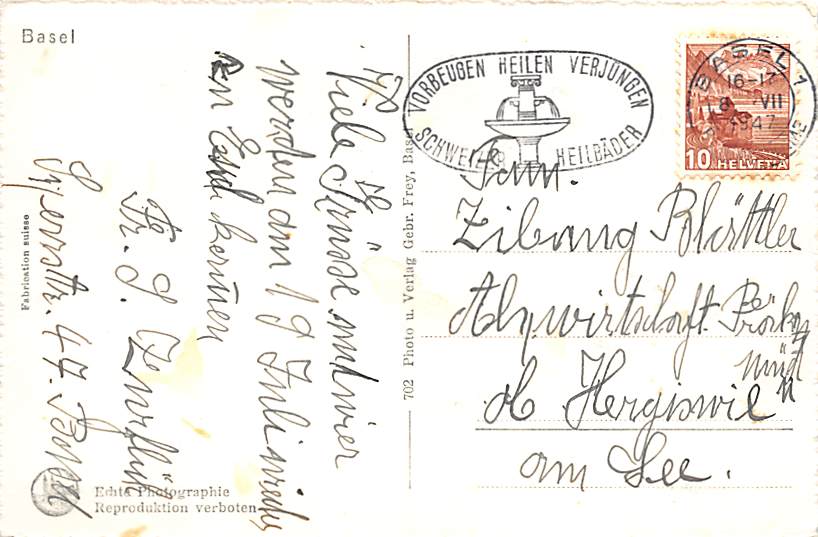 Basel
Viele Grüsse und wir
werden am 19 Juli
kommen
Fr. S.
Sperrstr. 47. Basel
Fabrication suisse
Echte Photographie
Reproduktion verboten
702 Photo u. Verlag Gebr. Frey, Basel
VORBEUGEN HEILEN VERJÜNGEN
SCHWEIZER HEILBÄDER
BASEL 1
16-17
8 VII
1947
10 HELVETIA
Fam.
Zibung Blättler
Alpwirtschaft
ob Hergiswil
am See.